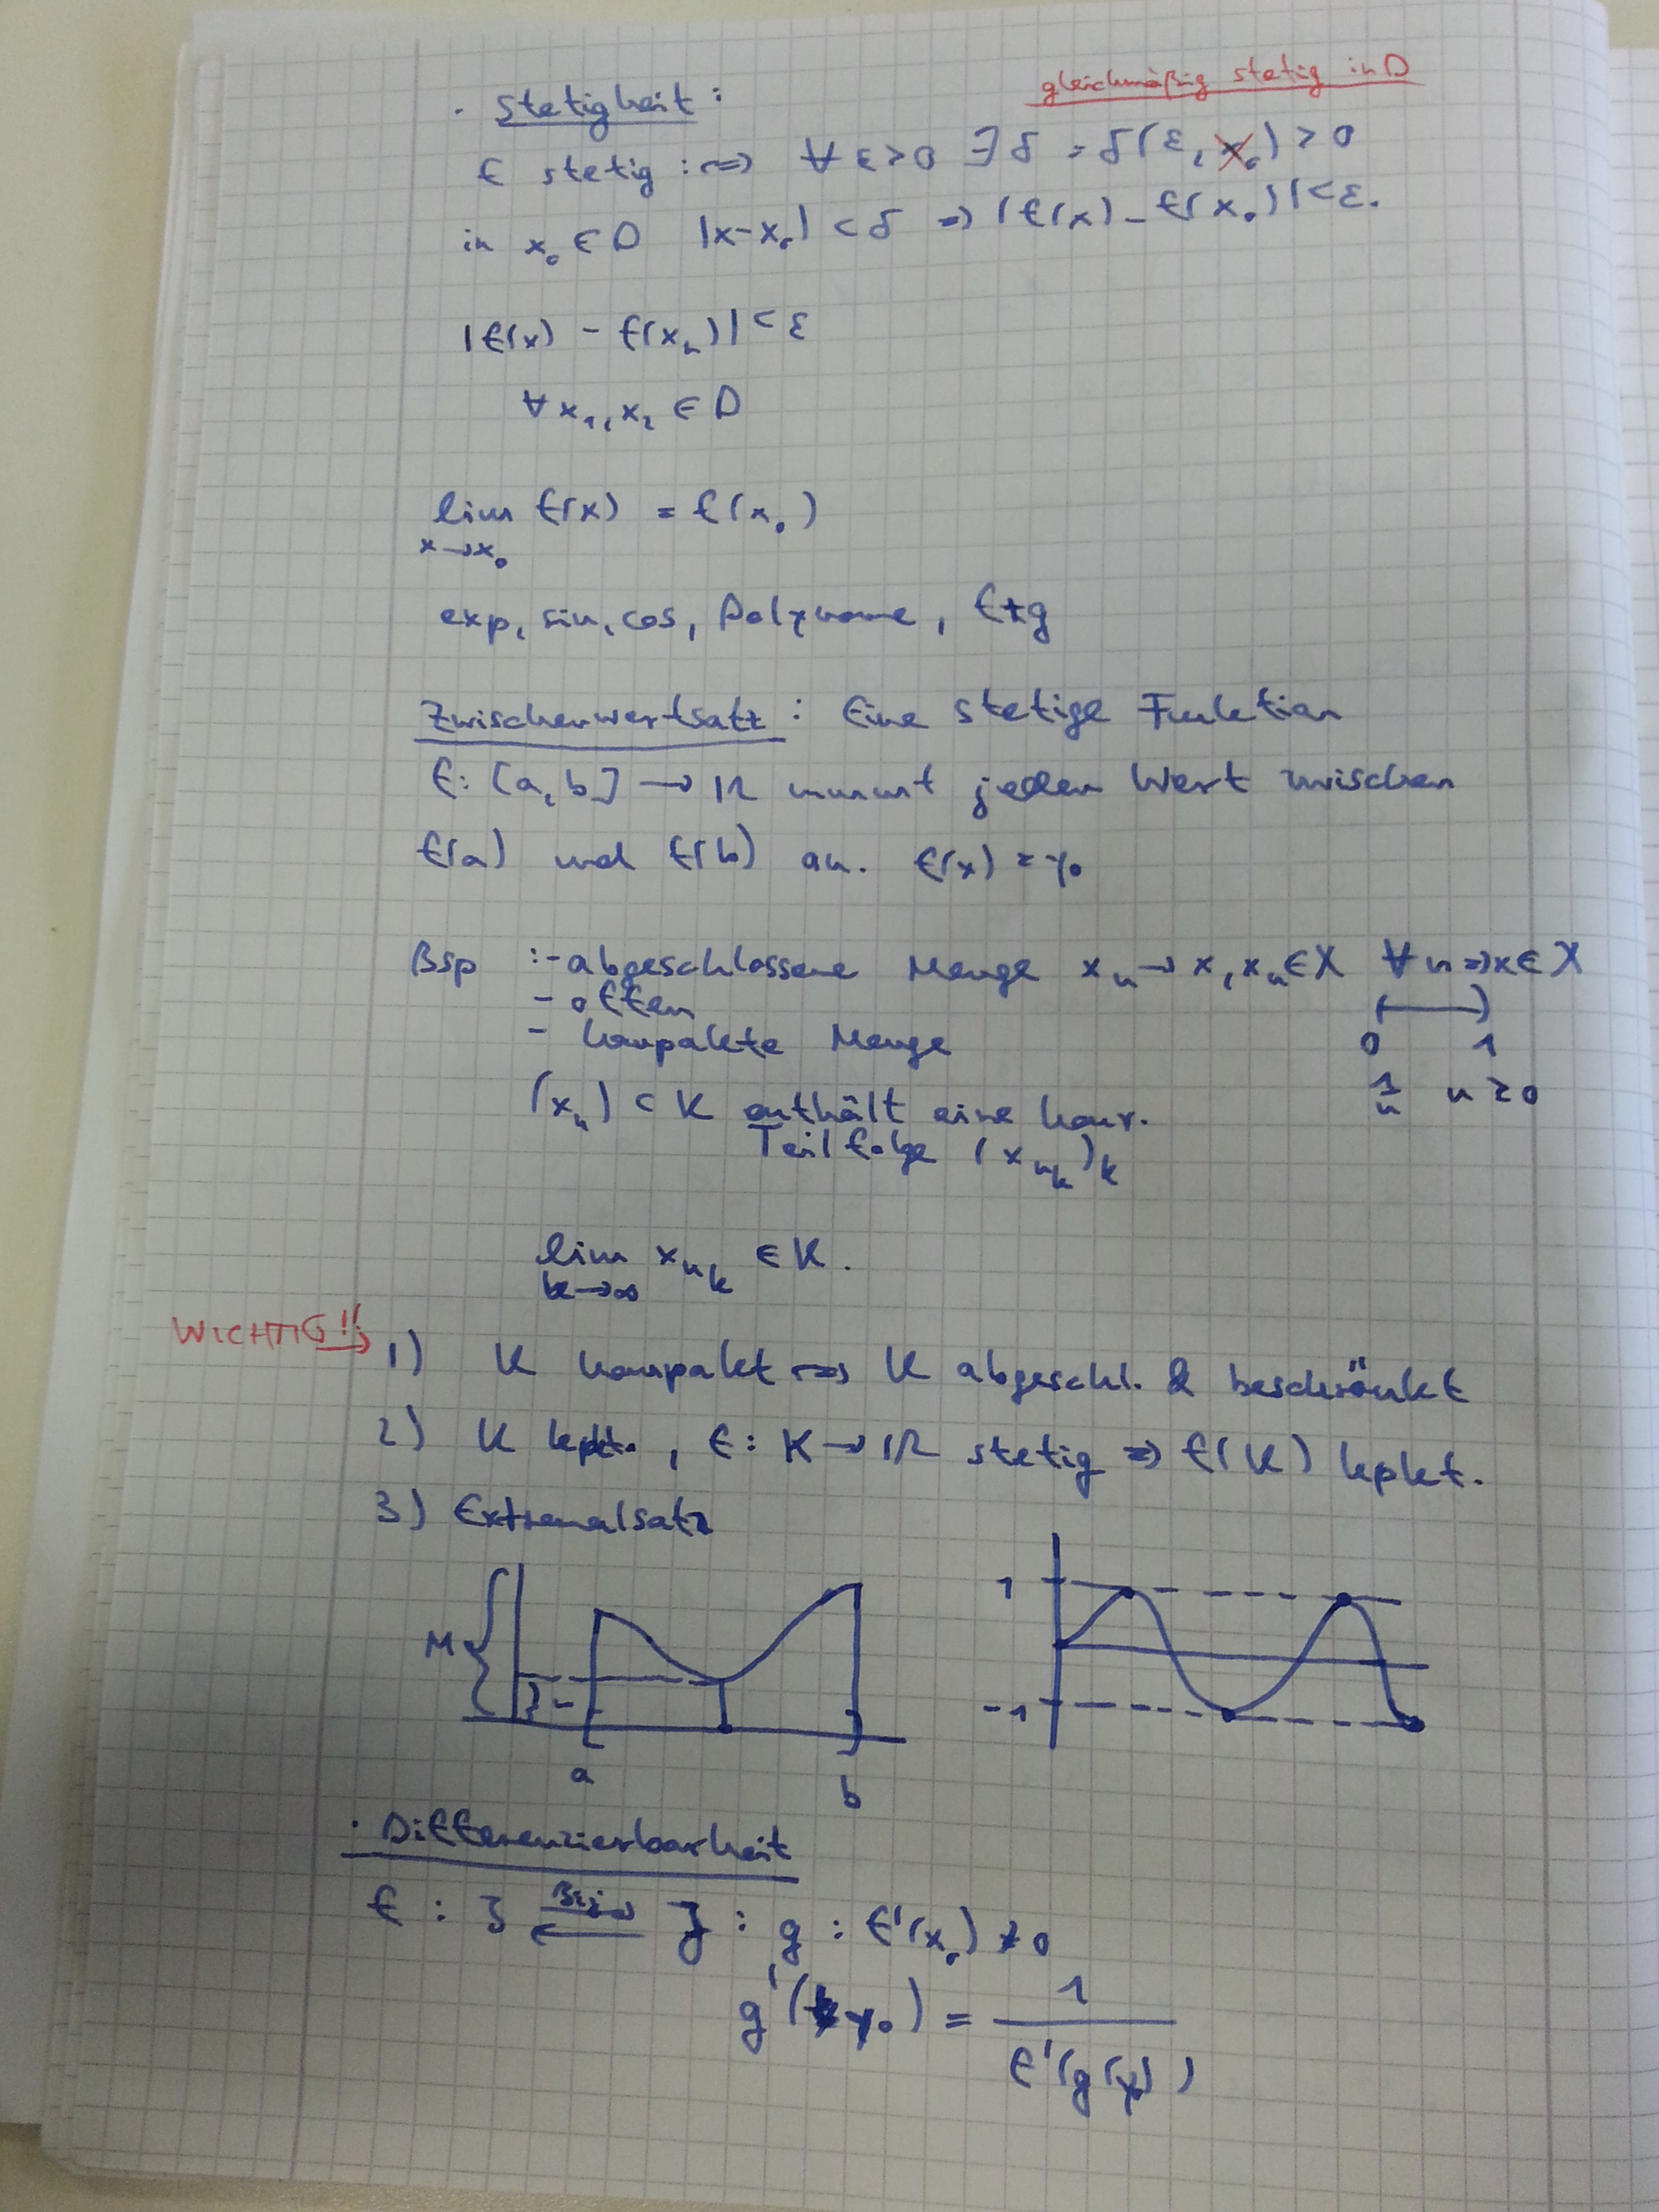 gleichmäßig stetig in D
· Stetigkeit:
f stetig :⇔ ∀ ε>0 ∃ δ = δ(ε, x₀) > 0
in x₀ ∈ D |x-x₀| < δ ⇒ |f(x) - f(x₀)| < ε.
|f(x) - f(xₙ)| < ε
∀ x₁, x₂ ∈ D
lim f(x) = f(x₀)
x→x₀
exp, sin, cos, Polynome, f±g
Zwischenwertsatz: Eine stetige Funktion
f: [a,b] → ℝ nimmt jeden Wert zwischen
f(a) und f(b) an. f(x) = y₀
Bsp :- abgeschlossene Menge xₙ → x, xₙ ∈ X ∀ n ⇒ x ∈ X
- offen
- kompakte Menge
0 1
(xₙ) ⊂ K enthält eine konv.
1/n n ≥ 0
Teilfolge (x_{n_k})_k
lim x_{n_k} ∈ K.
k→∞
WICHTIG!!
1) K kompakt ⇔ K abgeschl. & beschränkt
2) K kpkt., f: K → ℝ stetig ⇒ f(K) kpkt.
3) Extremalsatz
M
a b
1
-1
· Differenzierbarkeit
f : I Bij. J : g : f'(x₀) ≠ 0
g'(y₀) = 1 / f'(g(y₀))